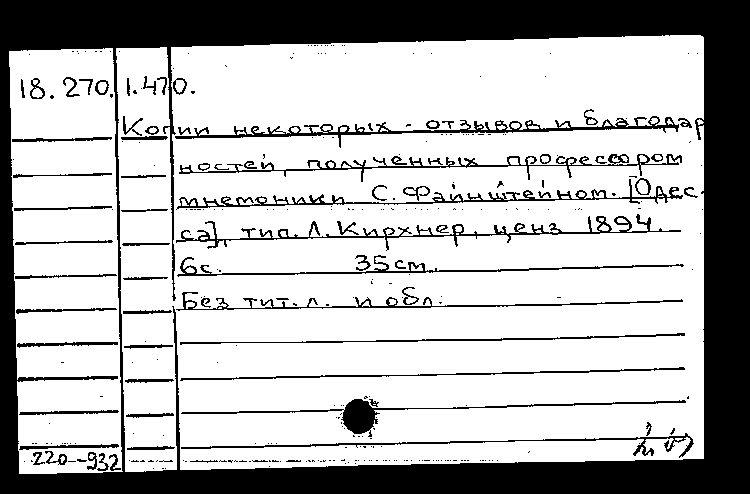 18.270.1.470.
Копии некоторых - отзывов и благодар
ностей, полученных профессором
мнемоники С. Файнштейном. [Одес.
са], тип. Л. Кирхнер, ценз 1894.
6с. 35 cm.
Без тит. л. и обл.
220-932